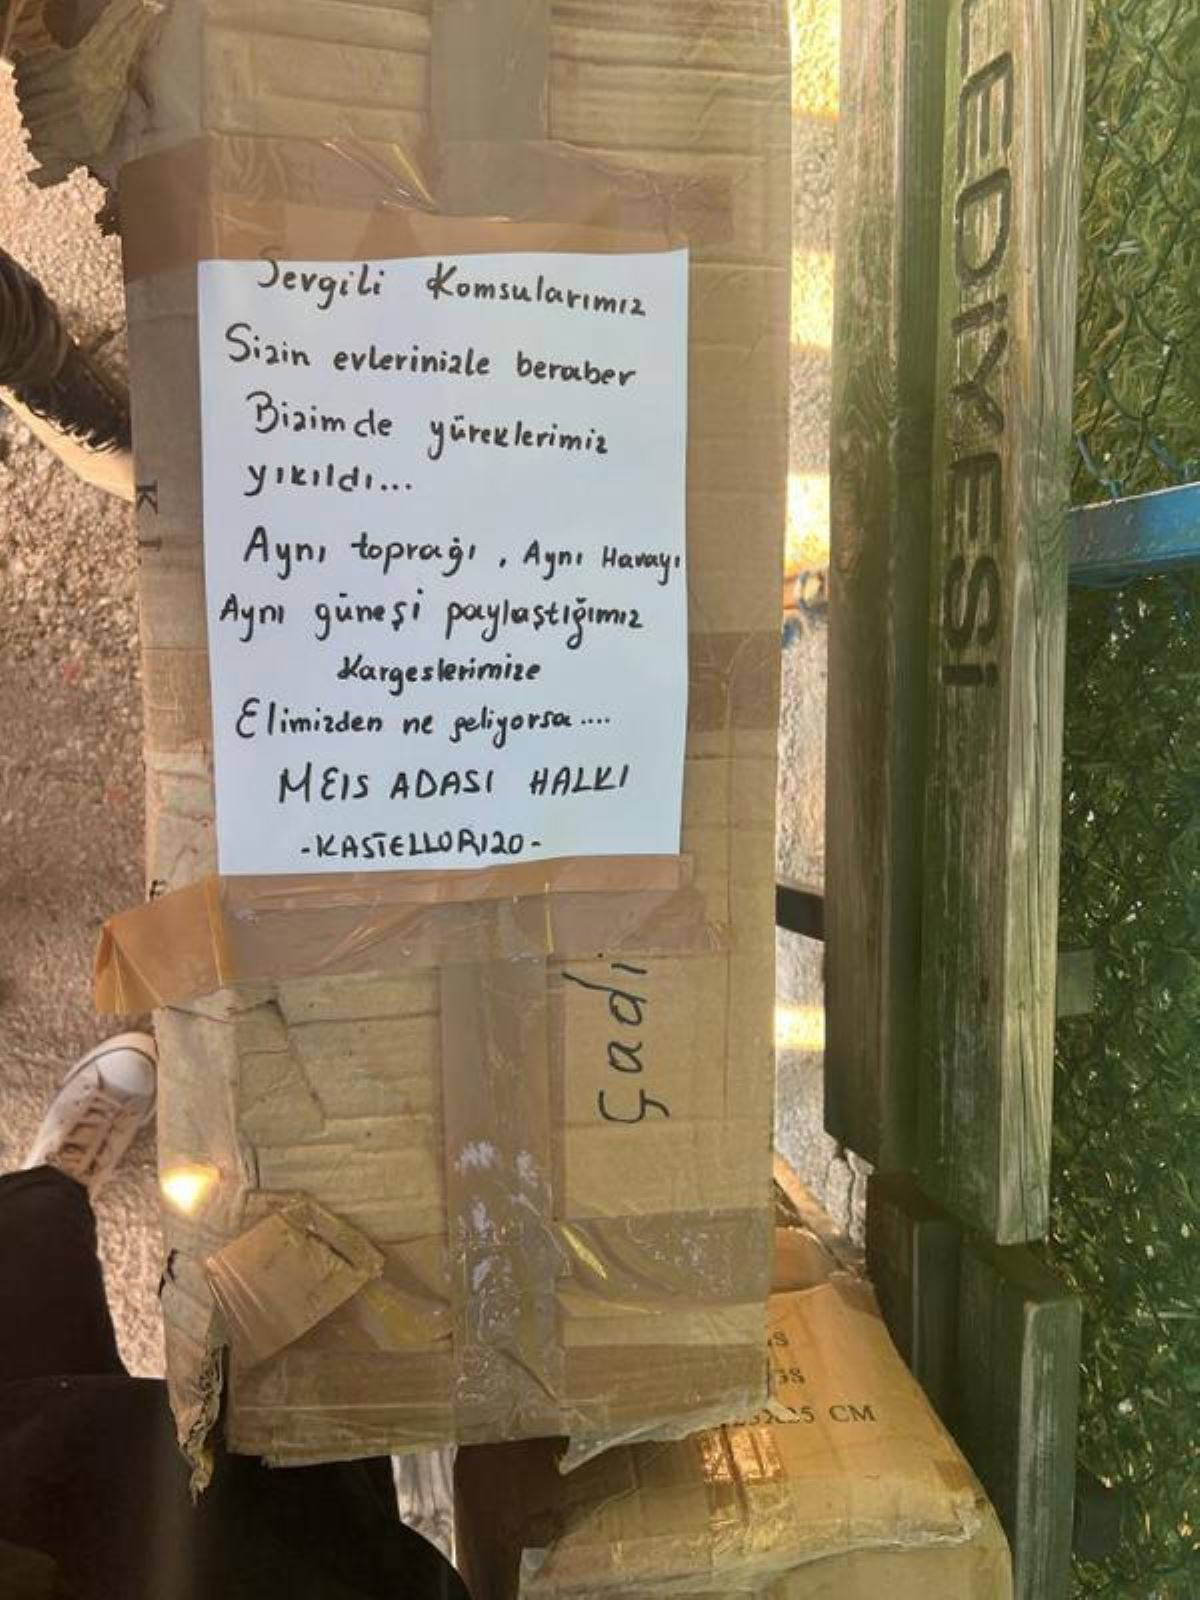 Sevgili Komsularımız
Sizin evlerinizle beraber
Bizimde yüreklerimiz
yıkıldı...
Aynı toprağı, Aynı Havayı
Aynı güneşi paylaştığımız
Kargeslerimize
Elimizden ne geliyorsa....
MEIS ADASI HALKI
-KASTELLORIZO-
Çadı
LEDİYESİ
CM